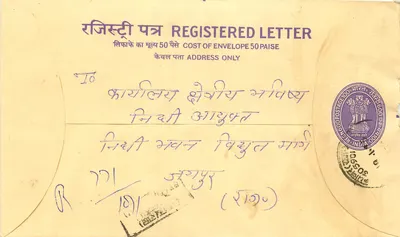 रजिस्ट्री पत्र REGISTERED LETTER
लिफाफे का मूल्य 50 पैसे COST OF ENVELOPE 50 PAISE
केवल पता ADDRESS ONLY
To
कार्यालय क्षेत्रीय भविष्य
निधी आयुक्त
निधी भवन विद्युत मार्ग
जयपुर
(राज०)
R 771